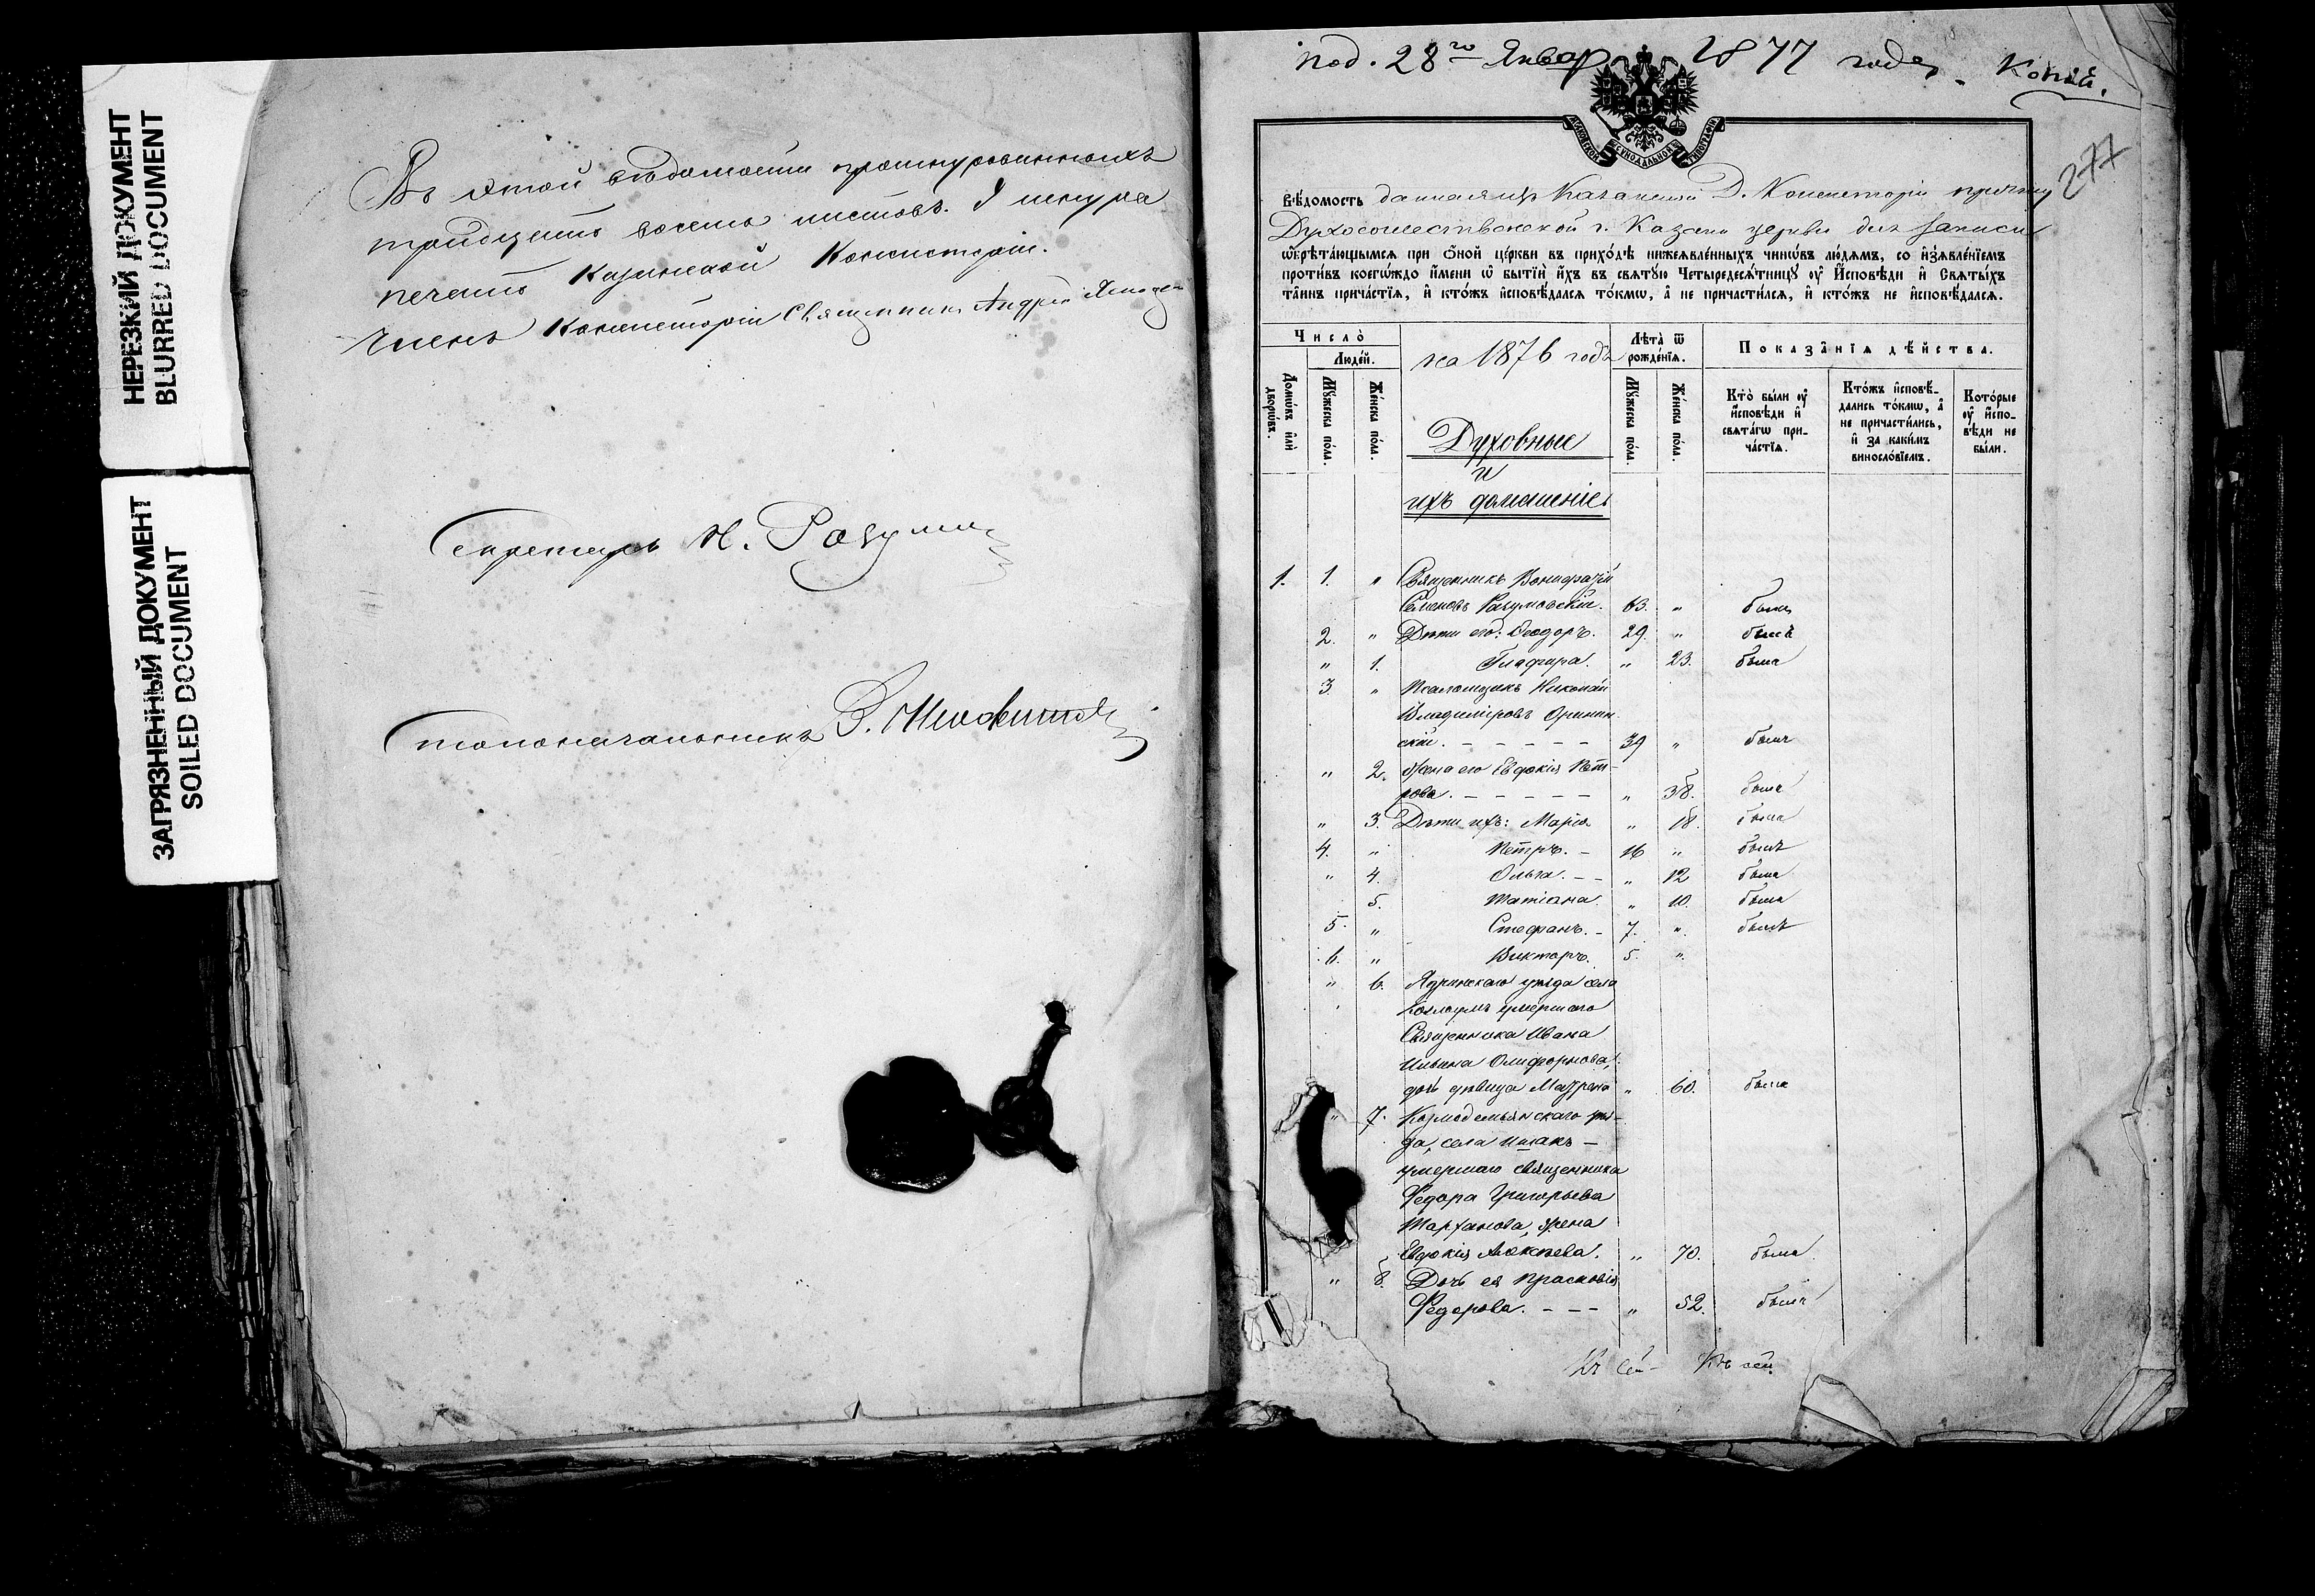 НЕРЕЗКИЙ ДОКУМЕНТ
BLURRED DOCUMENT
ЗАГРЯЗНЕННЫЙ ДОКУМЕНТ
SOILED DOCUMENT
Въ этой вѣдомости прошнурованныхъ
тридцать восемь листовъ. У шнура
печать Казанской Консисторіи.
Членъ Консисторіи Священникъ Андрей
Секретарь Н.
Столоначальникъ
под. 28го Январ 1877 года. Копія.
277
МОСКОВСКОЙ СѴНОДАЛЬНОЙ ТИПОГРАФІИ
Вѣдомость данная изъ Казанской Д. Консисторіи причту
Духосошественской г. Казани церкви для записи
ѡбрѣта́ющымся при ѻ҆́ной це́ркви въ прихо́дѣ нижеѧвле́нныхъ чинѡ́въ лю́дѧмъ, со и҆з̾ѧвле́нїемъ
проти́въ коегѡ́ждо и҆́мени ѡ҆ бытїѝ и҆́хъ въ свѧту́ю Четыредесѧ́тницу ᲂу҆ И҆́сповѣди и҆ Свѧты́хъ
та̑инъ прича́стїѧ, и҆ кто́жъ и҆сповѣ́далсѧ то́кмѡ, а҆ не причасти́лсѧ, и҆ кто́жъ не и҆сповѣ́далсѧ.
Число̀
Люде́й.
на 1876 годъ
Лѣ́та ѿ рожде́нїѧ.
Показа̑нїѧ дѣ́йства.
Домѡ́въ и҆лѝ дворѡ́въ.
Мꙋ́жеска по́ла.
Же́нска по́ла.
Мꙋ́жеска по́ла.
Же́нска по́ла.
Кто̀ бы́ли ᲂу҆ и҆́сповѣди и҆ свѧта́гѡ прича́стїѧ.
Кто́жъ и҆сповѣ́дались то́кмѡ, а҆ не причасти́лись, и҆ за каки́мъ виносло́вїемъ.
Кото́рые ᲂу҆ и҆́сповѣди не бы́ли.
Духовные
и
ихъ домашніе
1. 1. " Священникъ Вонифатій
Семеновъ Разумовскій. 63. " былъ
2. " Дѣти его: Ѳеодоръ. 29. " былъ
" 1. Глафира. " 23. была
3 " Псаломщикъ Николай
Владиміровъ Оринин
скій. – – – – – 39 " былъ
" 2. Жена его Евдокія Пет-
рова. – – – – – " 38. была
" 3. Дѣти ихъ: Марія " 18. была
4. " Петръ. – 16 " былъ
" 4. Ольга. – – " 12 была
5. Татіана. " 10. была
5. " Стефанъ. – 7. " былъ
6. " Викторъ. 5. "
" 6. Ядринскаго уѣзда села
умершаго
Священника Ивана
Ильина Олиферова,
дочь дѣвица Маѵра " 60. была
" 7. Козмодемьянскаго уѣз-
да, села Ишакъ –
умершаго священника
Федора Григорьева
Тарханова, жена
Евдокія Алексѣева. " 70. была
" 8. Дочь ея Прасковія
Федорова. – – – " 52. была